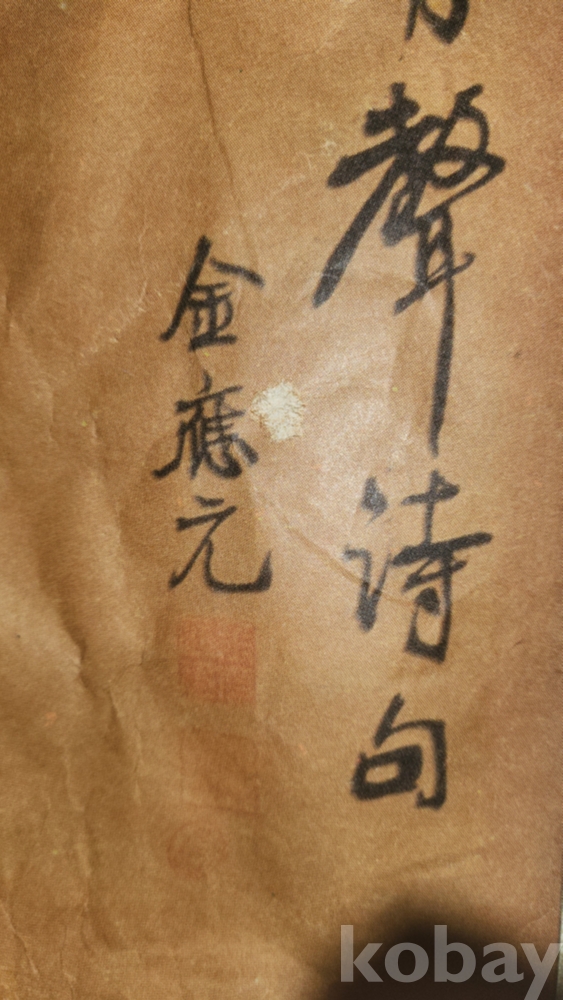 聲诗句
金應元
kobay